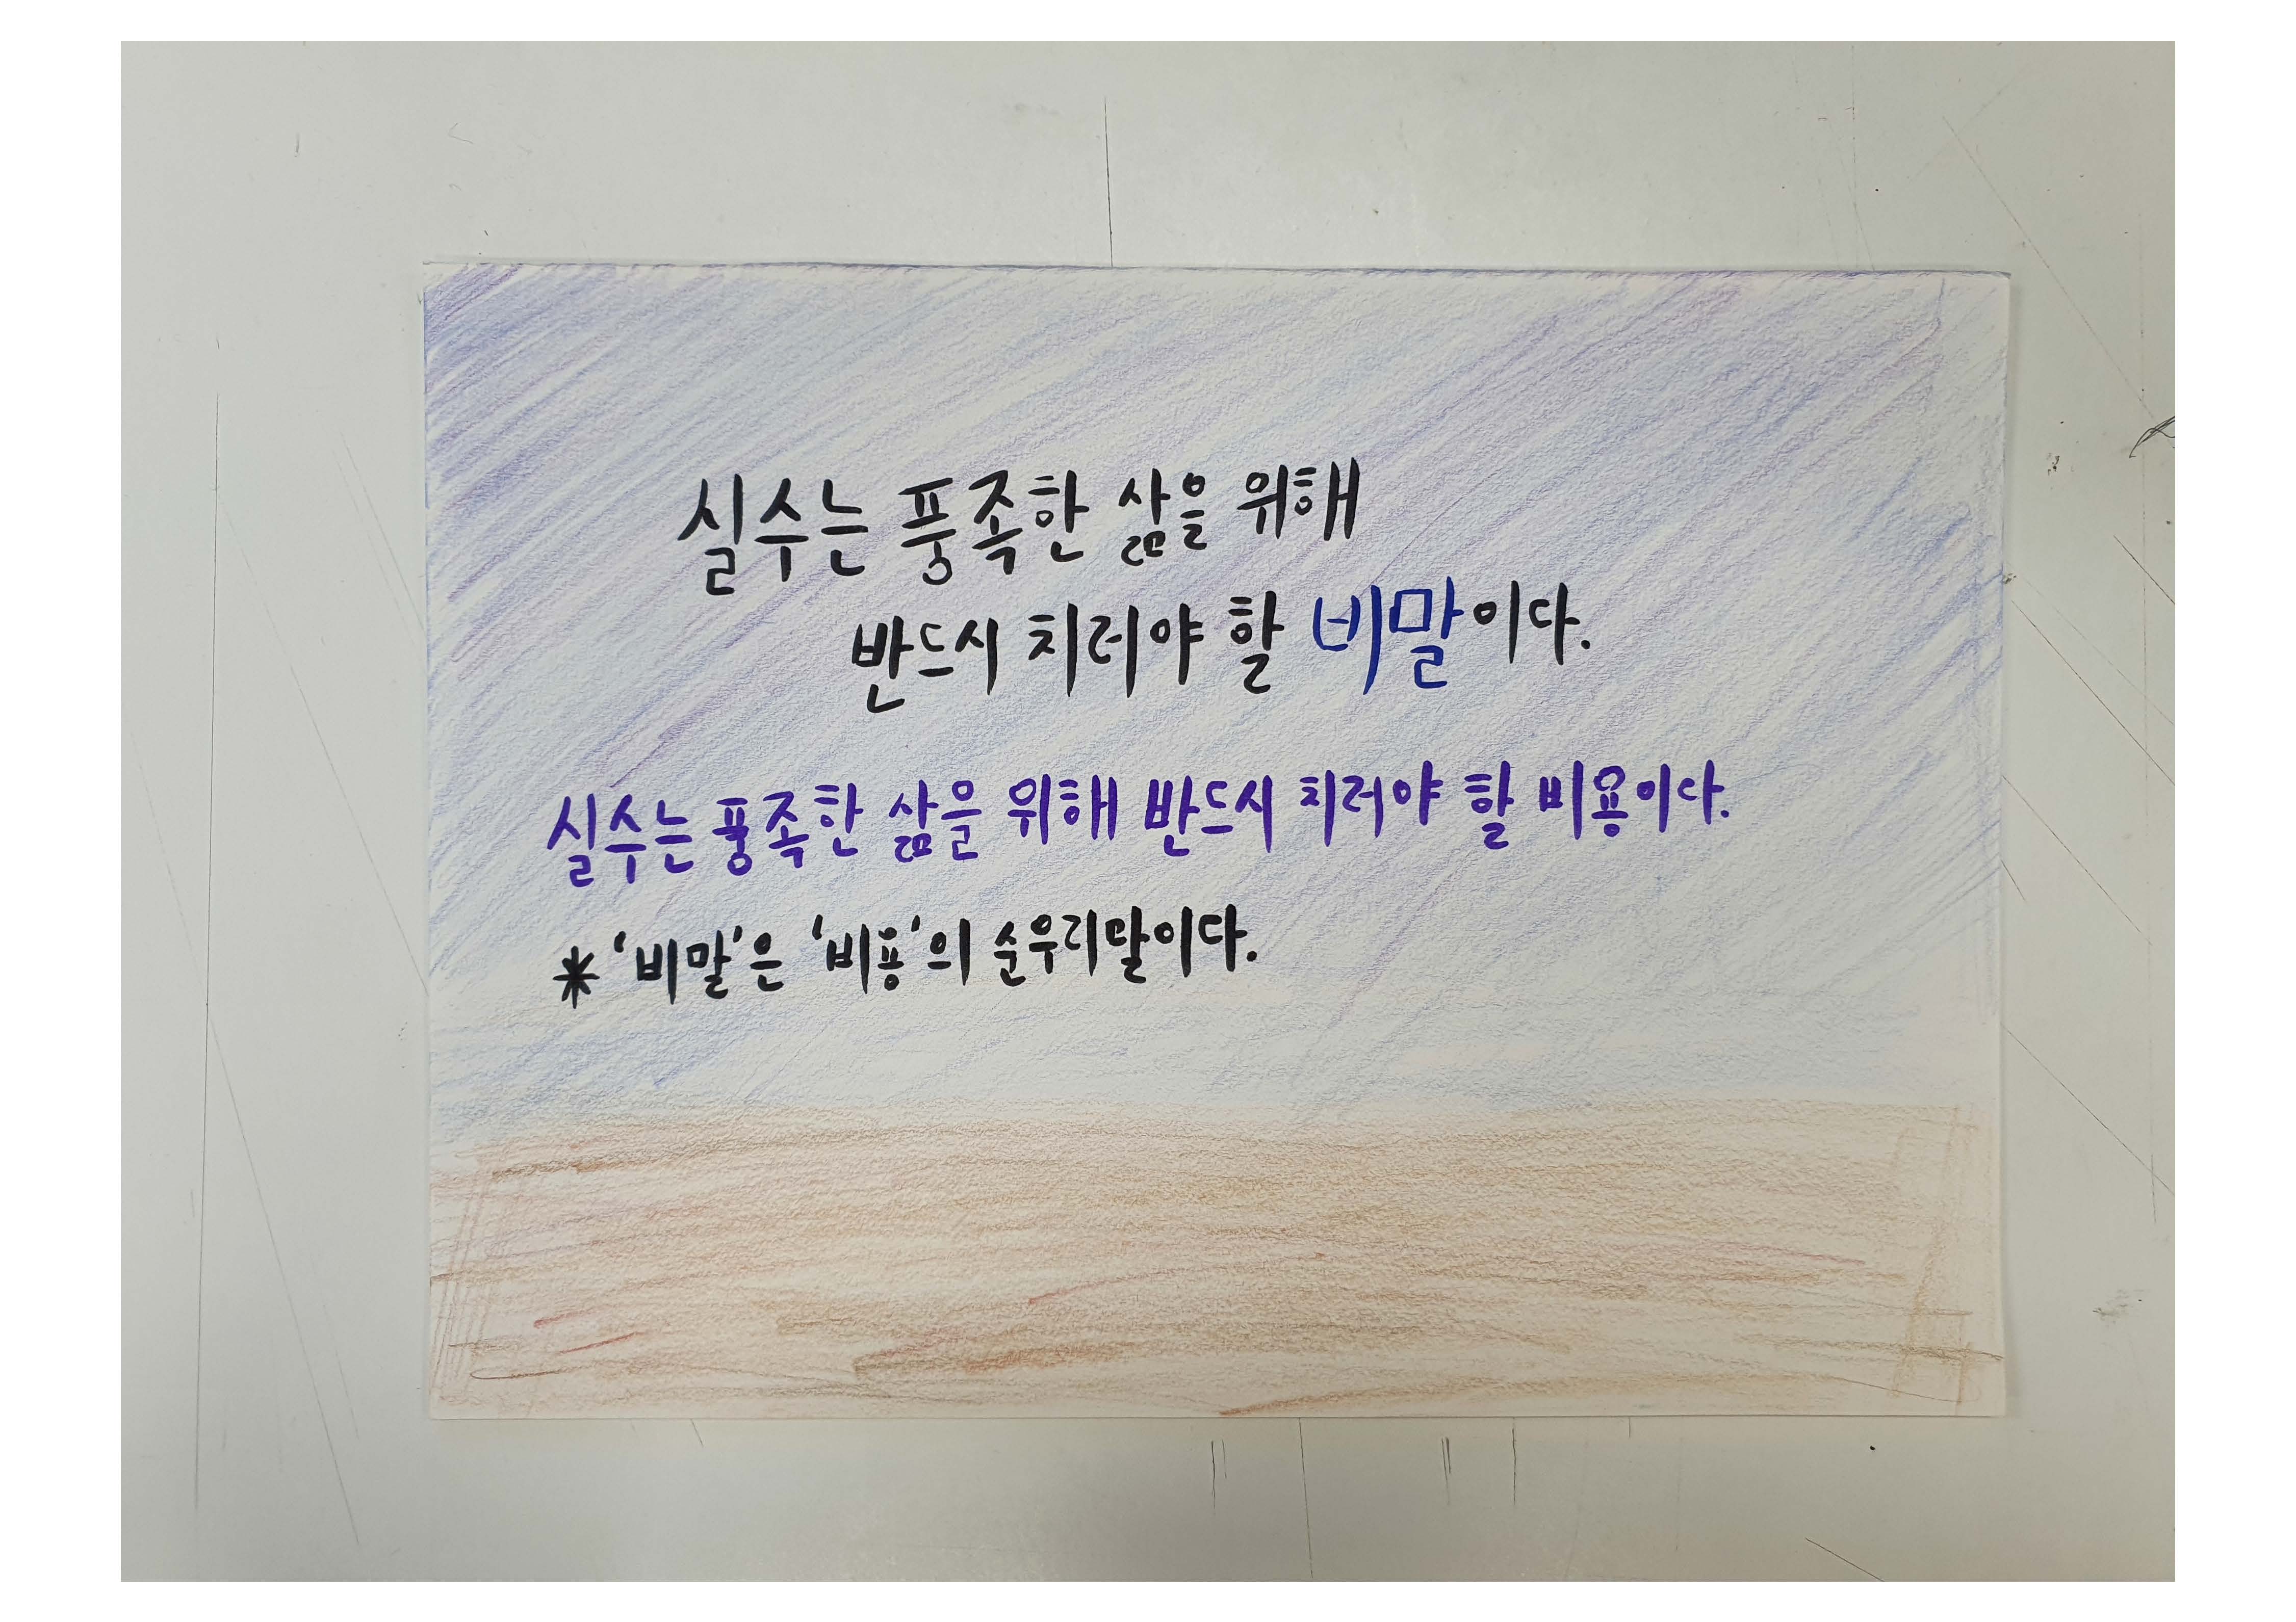 실수는 풍족한 삶을 위해
반드시 치러야 할 비말이다.
실수는 풍족한 삶을 위해 반드시 치러야 할 비용이다.
* '비말'은 '비용'의 순우리말이다.